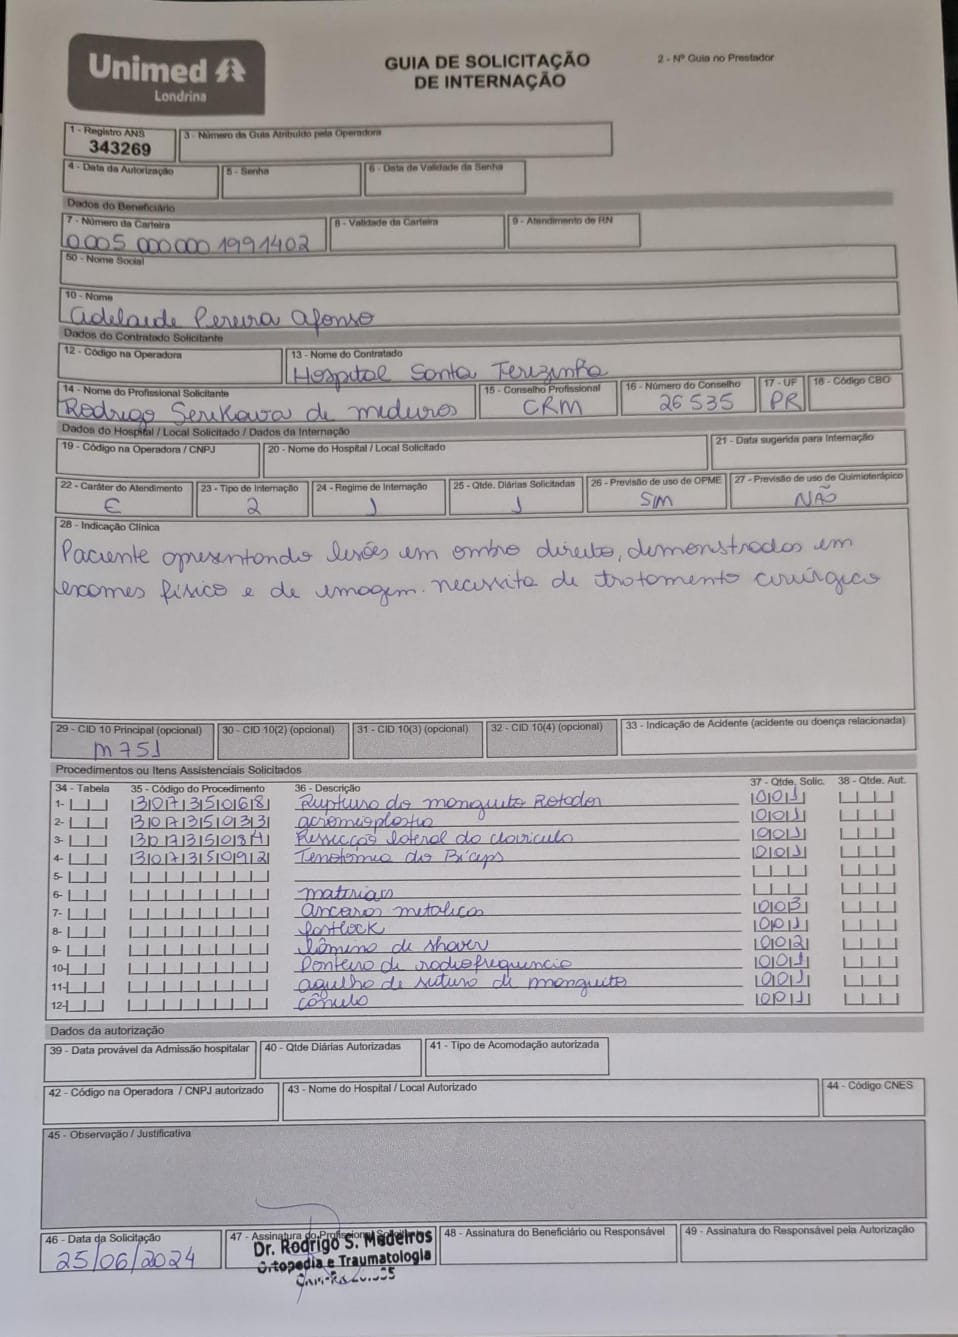 Unimed
Londrina
GUIA DE SOLICITAÇÃO
DE INTERNAÇÃO
2 - Nº Guia no Prestador
1 - Registro ANS
343269
3 - Número da Guia Atribuído pela Operadora
4 - Data da Autorização
5 - Senha
6 - Data de Validade da Senha
Dados do Beneficiário
7 - Número da Carteira
0005 000000 1991402
8 - Validade da Carteira
9 - Atendimento de RN
50 - Nome Social
10 - Nome
Adelaide Pereira Afonso
Dados do Contratado Solicitante
12 - Código na Operadora
13 - Nome do Contratado
Hospital Santa Terezinha
14 - Nome do Profissional Solicitante
Rodrigo Serikawa de medeiros
15 - Conselho Profissional
CRM
16 - Número do Conselho
26535
17 - UF
PR
18 - Código CBO
Dados do Hospital / Local Solicitado / Dados da Internação
19 - Código na Operadora / CNPJ
20 - Nome do Hospital / Local Solicitado
21 - Data sugerida para Internação
22 - Caráter do Atendimento
E
23 - Tipo de Internação
2
24 - Regime de Internação
1
25 - Qtde. Diárias Solicitadas
1
26 - Previsão de uso de OPME
SIM
27 - Previsão de uso de Quimioterápico
NÃO
28 - Indicação Clínica
Paciente apresentando lesões em ombro direito, demonstrados em
exames físico e de imagem. necessita de tratamento cirúrgico
29 - CID 10 Principal (opcional)
M751
30 - CID 10(2) (opcional)
31 - CID 10(3) (opcional)
32 - CID 10(4) (opcional)
33 - Indicação de Acidente (acidente ou doença relacionada)
Procedimentos ou Itens Assistenciais Solicitados
34 - Tabela 35 - Código do Procedimento 36 - Descrição 37 - Qtde. Solic. 38 - Qtde. Aut.
1- 30735068 Ruptura do manguito Rotador 001
2- 30735033 acromioplastia 001
3- 3073508A Ressecção lateral da clavicula 001
4- 30735092 Tenotomia do Bíceps 001
5-
6- materiais
7- âncoras metalicas 003
8- fastlock 001
9- lâmina de shaver 002
10- Ponteira de radiofrequencia 001
11- agulha de sutura de manguito 001
12- cânula 001
Dados da autorização
39 - Data provável da Admissão hospitalar
40 - Qtde Diárias Autorizadas
41 - Tipo de Acomodação autorizada
42 - Código na Operadora / CNPJ autorizado
43 - Nome do Hospital / Local Autorizado
44 - Código CNES
45 - Observação / Justificativa
46 - Data da Solicitação
25/06/2024
47 - Assinatura do Profissional
Dr. Rodrigo S. Medeiros
Ortopedia e Traumatologia
48 - Assinatura do Beneficiário ou Responsável
49 - Assinatura do Responsável pela Autorização